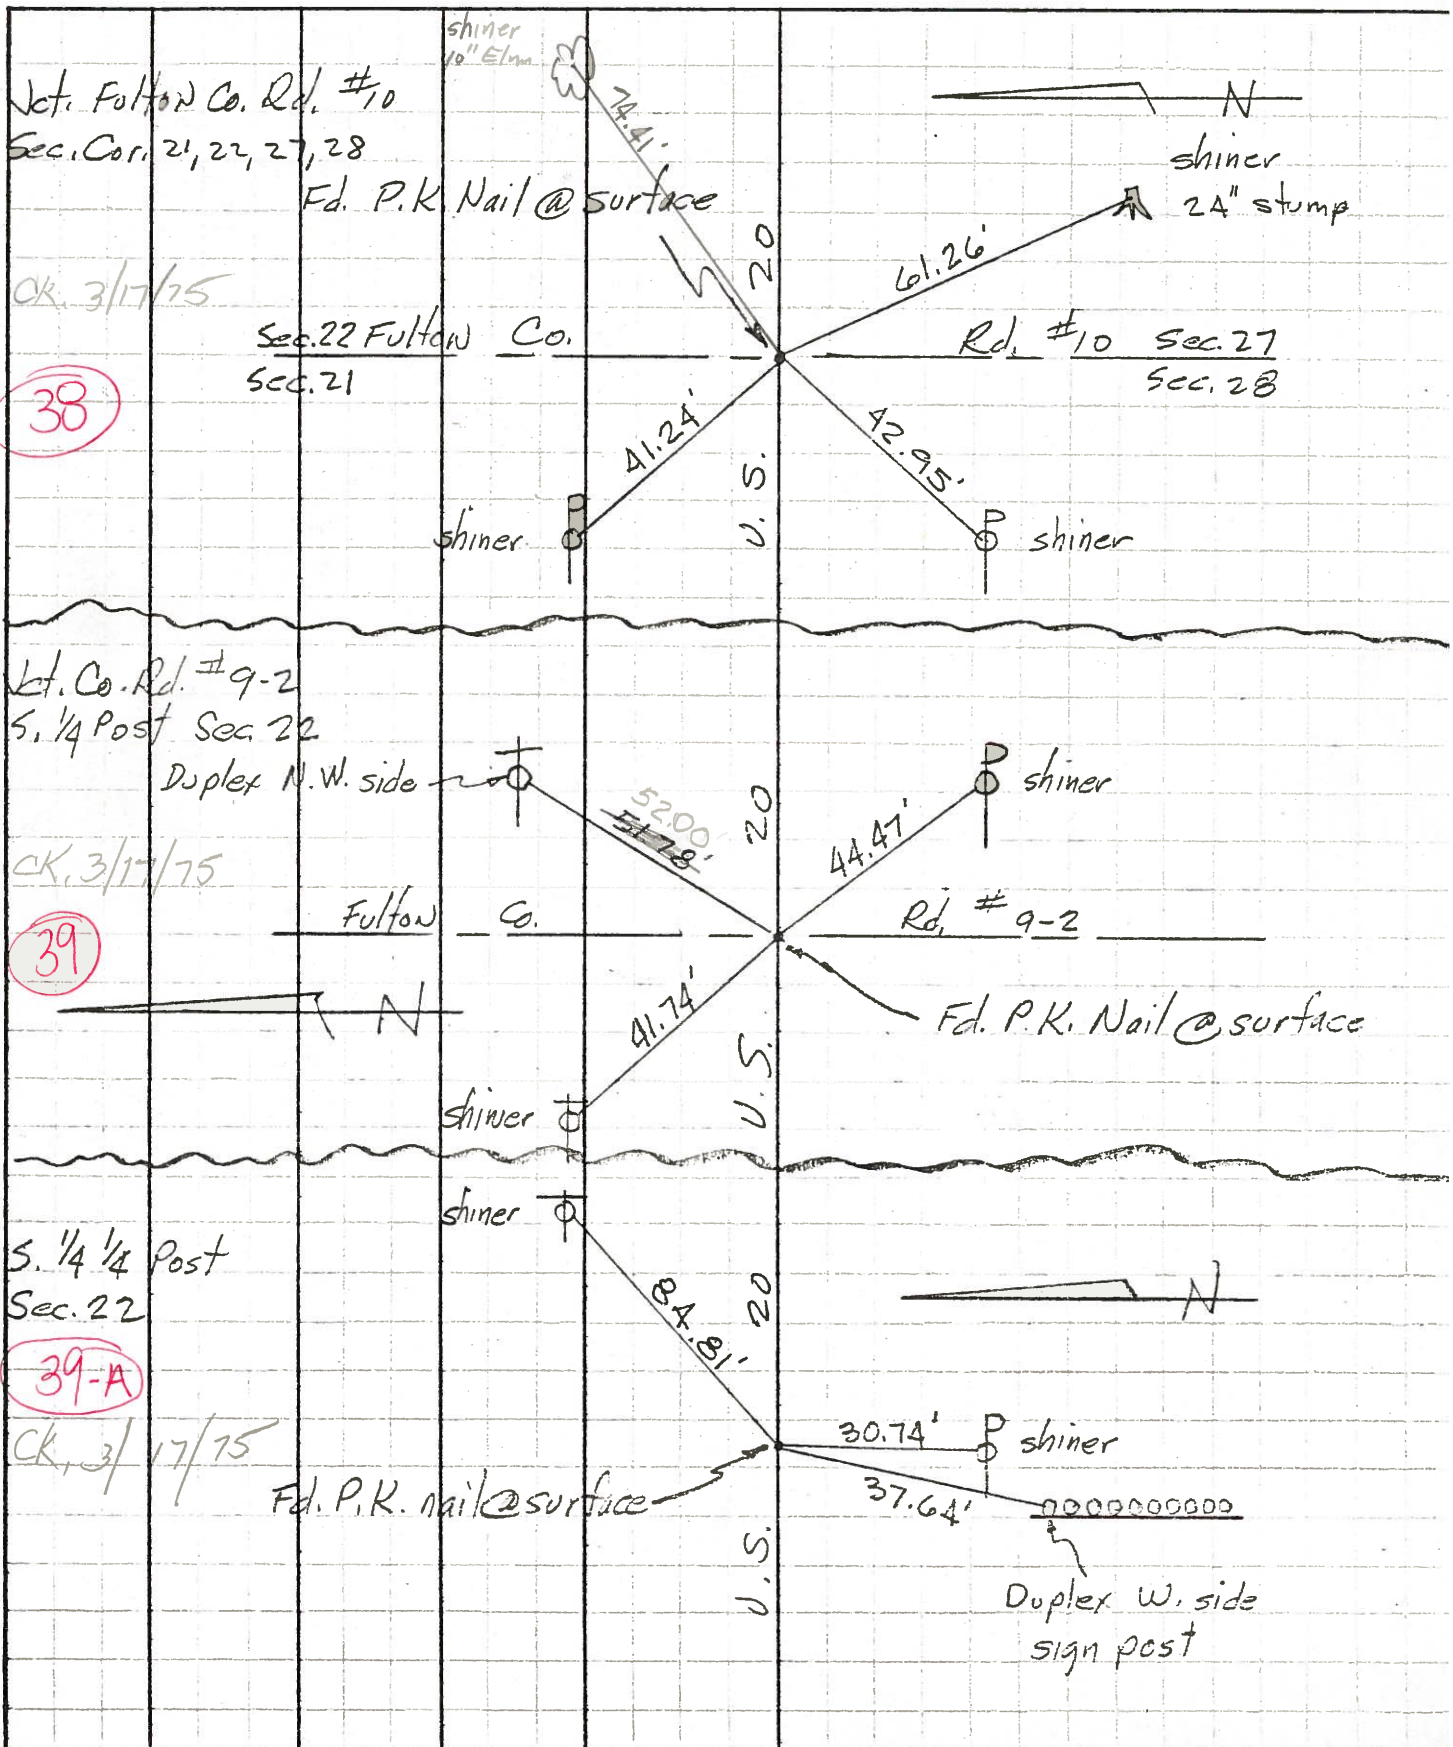 shiner
10" Elm
Jct. Fulton Co. Rd. #10
Sec. Cor. 21, 22, 27, 28
Fd. P.K. Nail @ surface
74.41'
N
shiner
24" stump
61.26'
CK. 3/17/75
U.S. 20
Sec. 22 Fulton Co. Rd. #10 Sec. 27
Sec. 21 Sec. 28
38
41.24'
42.95'
shiner
shiner
Jct. Co. Rd. #9-2
S. 1/4 Post Sec. 22
Duplex N.W. side
52.00'
51.78'
44.47'
shiner
CK. 3/17/75
U.S. 20
Fulton Co. Rd. # 9-2
39
N
41.74'
Fd. P.K. Nail @ surface
shiner
shiner
S. 1/4 1/4 Post
Sec. 22
84.81'
U.S. 20
N
39-A
CK. 3/17/75
30.74'
shiner
37.64'
Fd. P.K. nail @ surface
Duplex W. side
sign post